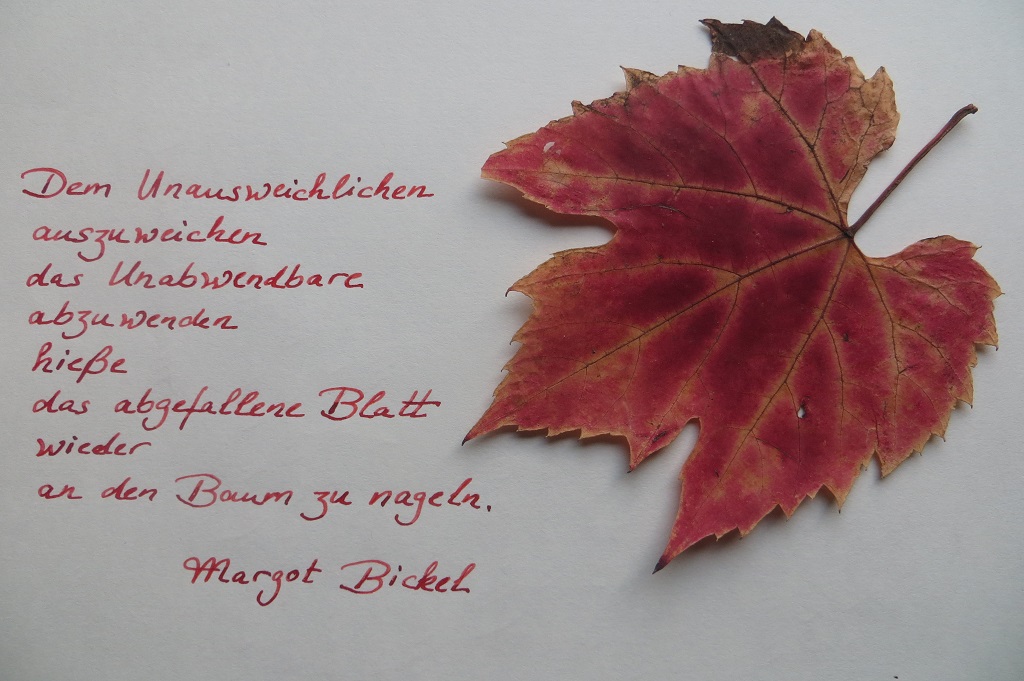 Dem Unausweichlichen
auszuweichen
das Unabwendbare
abzuwenden
hieße
das abgefallene Blatt
wieder
an den Baum zu nageln.
Margot Bickel